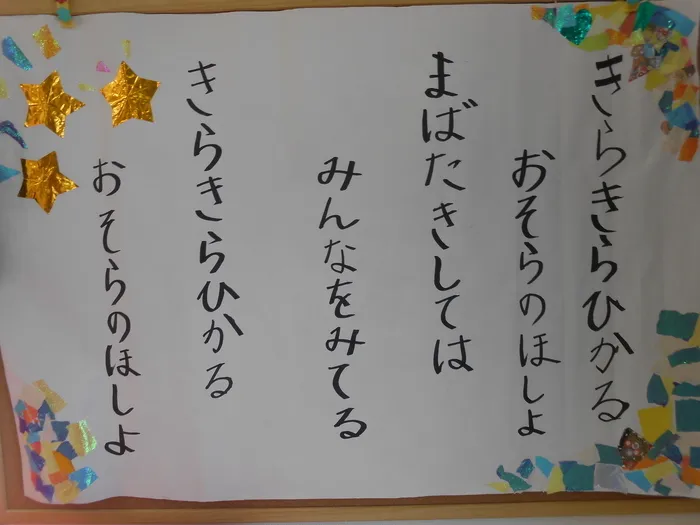 きらきらひかる
おそらのほしよ
まばたきしては
みんなをみてる
きらきらひかる
おそらのほしよ